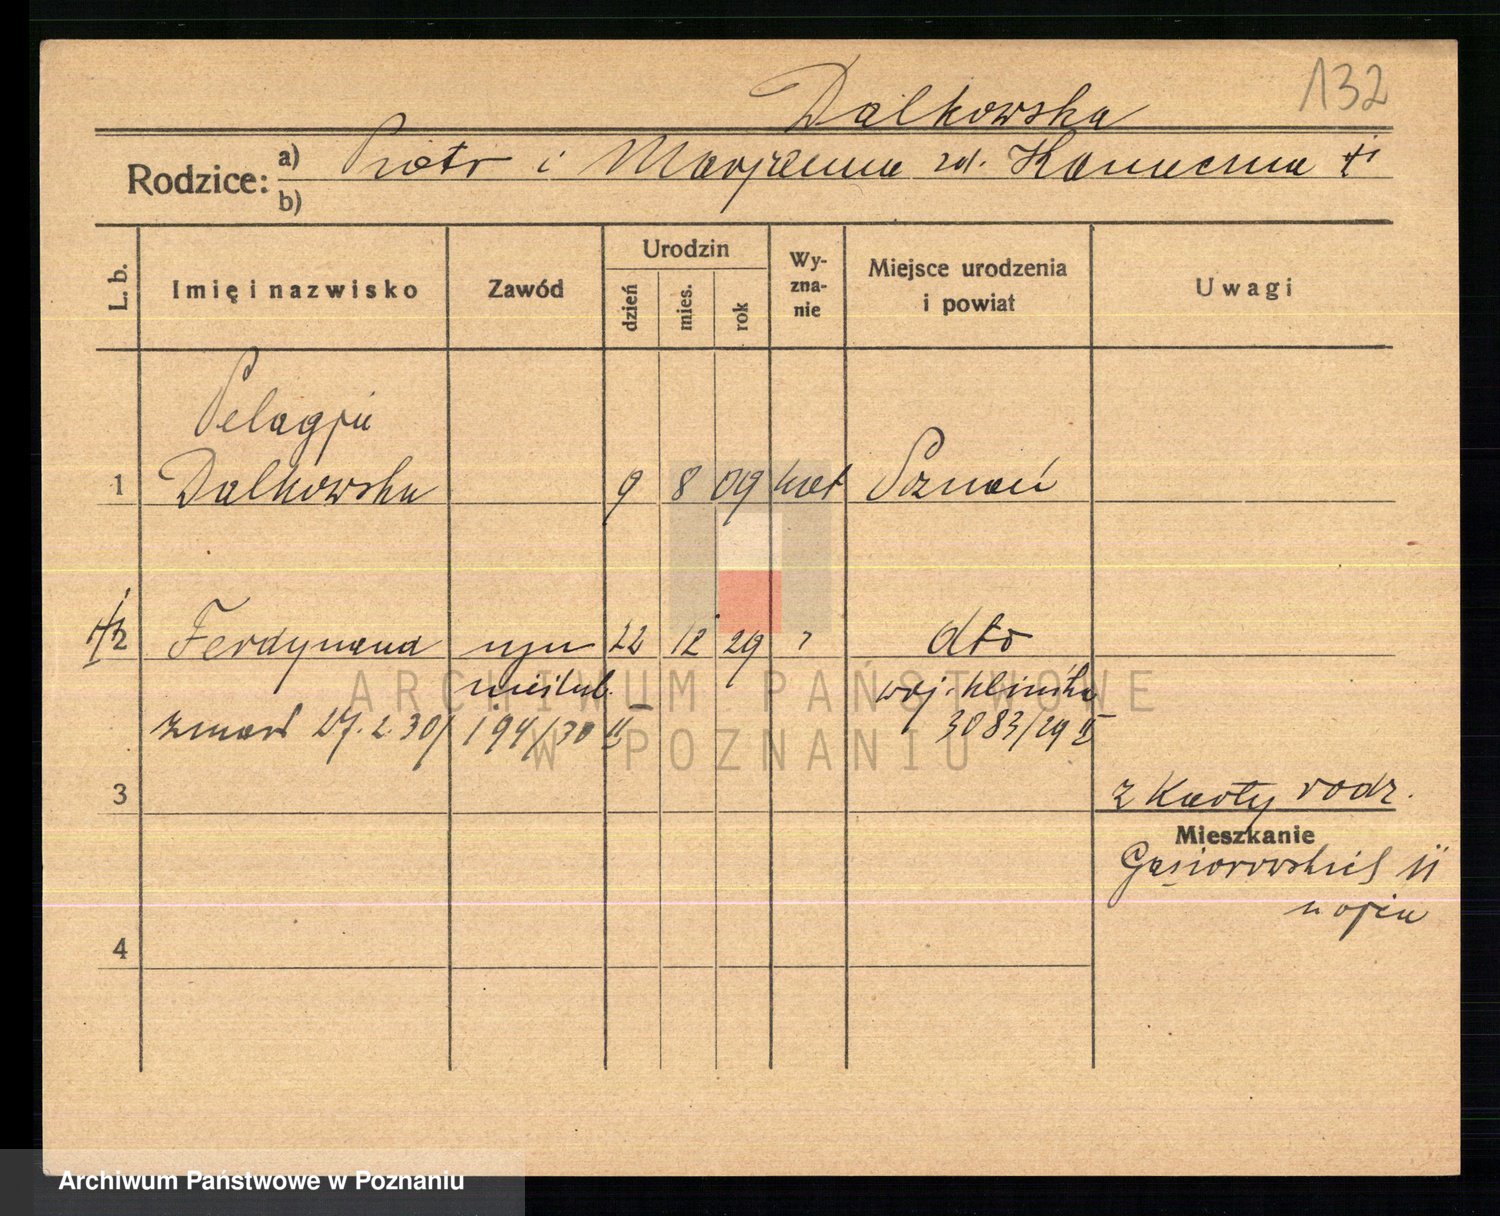 132
Dalkowska
Rodzice: a) Piotr i Marjanna
b)
L. b. Imię i nazwisko Zawód Urodzin dzień mies. rok Wyznanie Miejsce urodzenia i powiat Uwagi
Pelagja
1 Dalkowska 9 8 09 kat Poznań
2 Ferdynand syn 22 12 29 dto
nieślub.
zmarł 27.2.30 194/30 II 3083/29 II
3 z Karty rodz.
Mieszkanie
Gąsiorowskich 11
4
ARCHIWUM PAŃSTWOWE
W POZNANIU
Archiwum Państwowe w Poznaniu